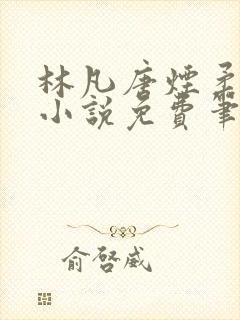 林凡唐煙柔
小說免費筆
俞啓威